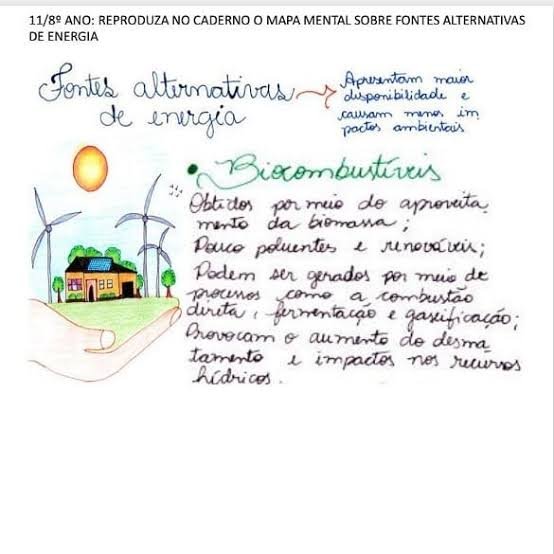 11/8º ANO: REPRODUZA NO CADERNO O MAPA MENTAL SOBRE FONTES ALTERNATIVAS
DE ENERGIA
Fontes alternativas
de energia
Apresentam maior
disponibilidade e
causam menos im
pactos ambientais
• Biocombustíveis
Obtidos por meio do aproveita
mento da biomassa;
Pouco poluentes e renováveis;
Podem ser gerados por meio de
processos como a combustão
direta, fermentação e gaseificação;
Provocam o aumento do desma
tamento e impactos nos recursos
hídricos.